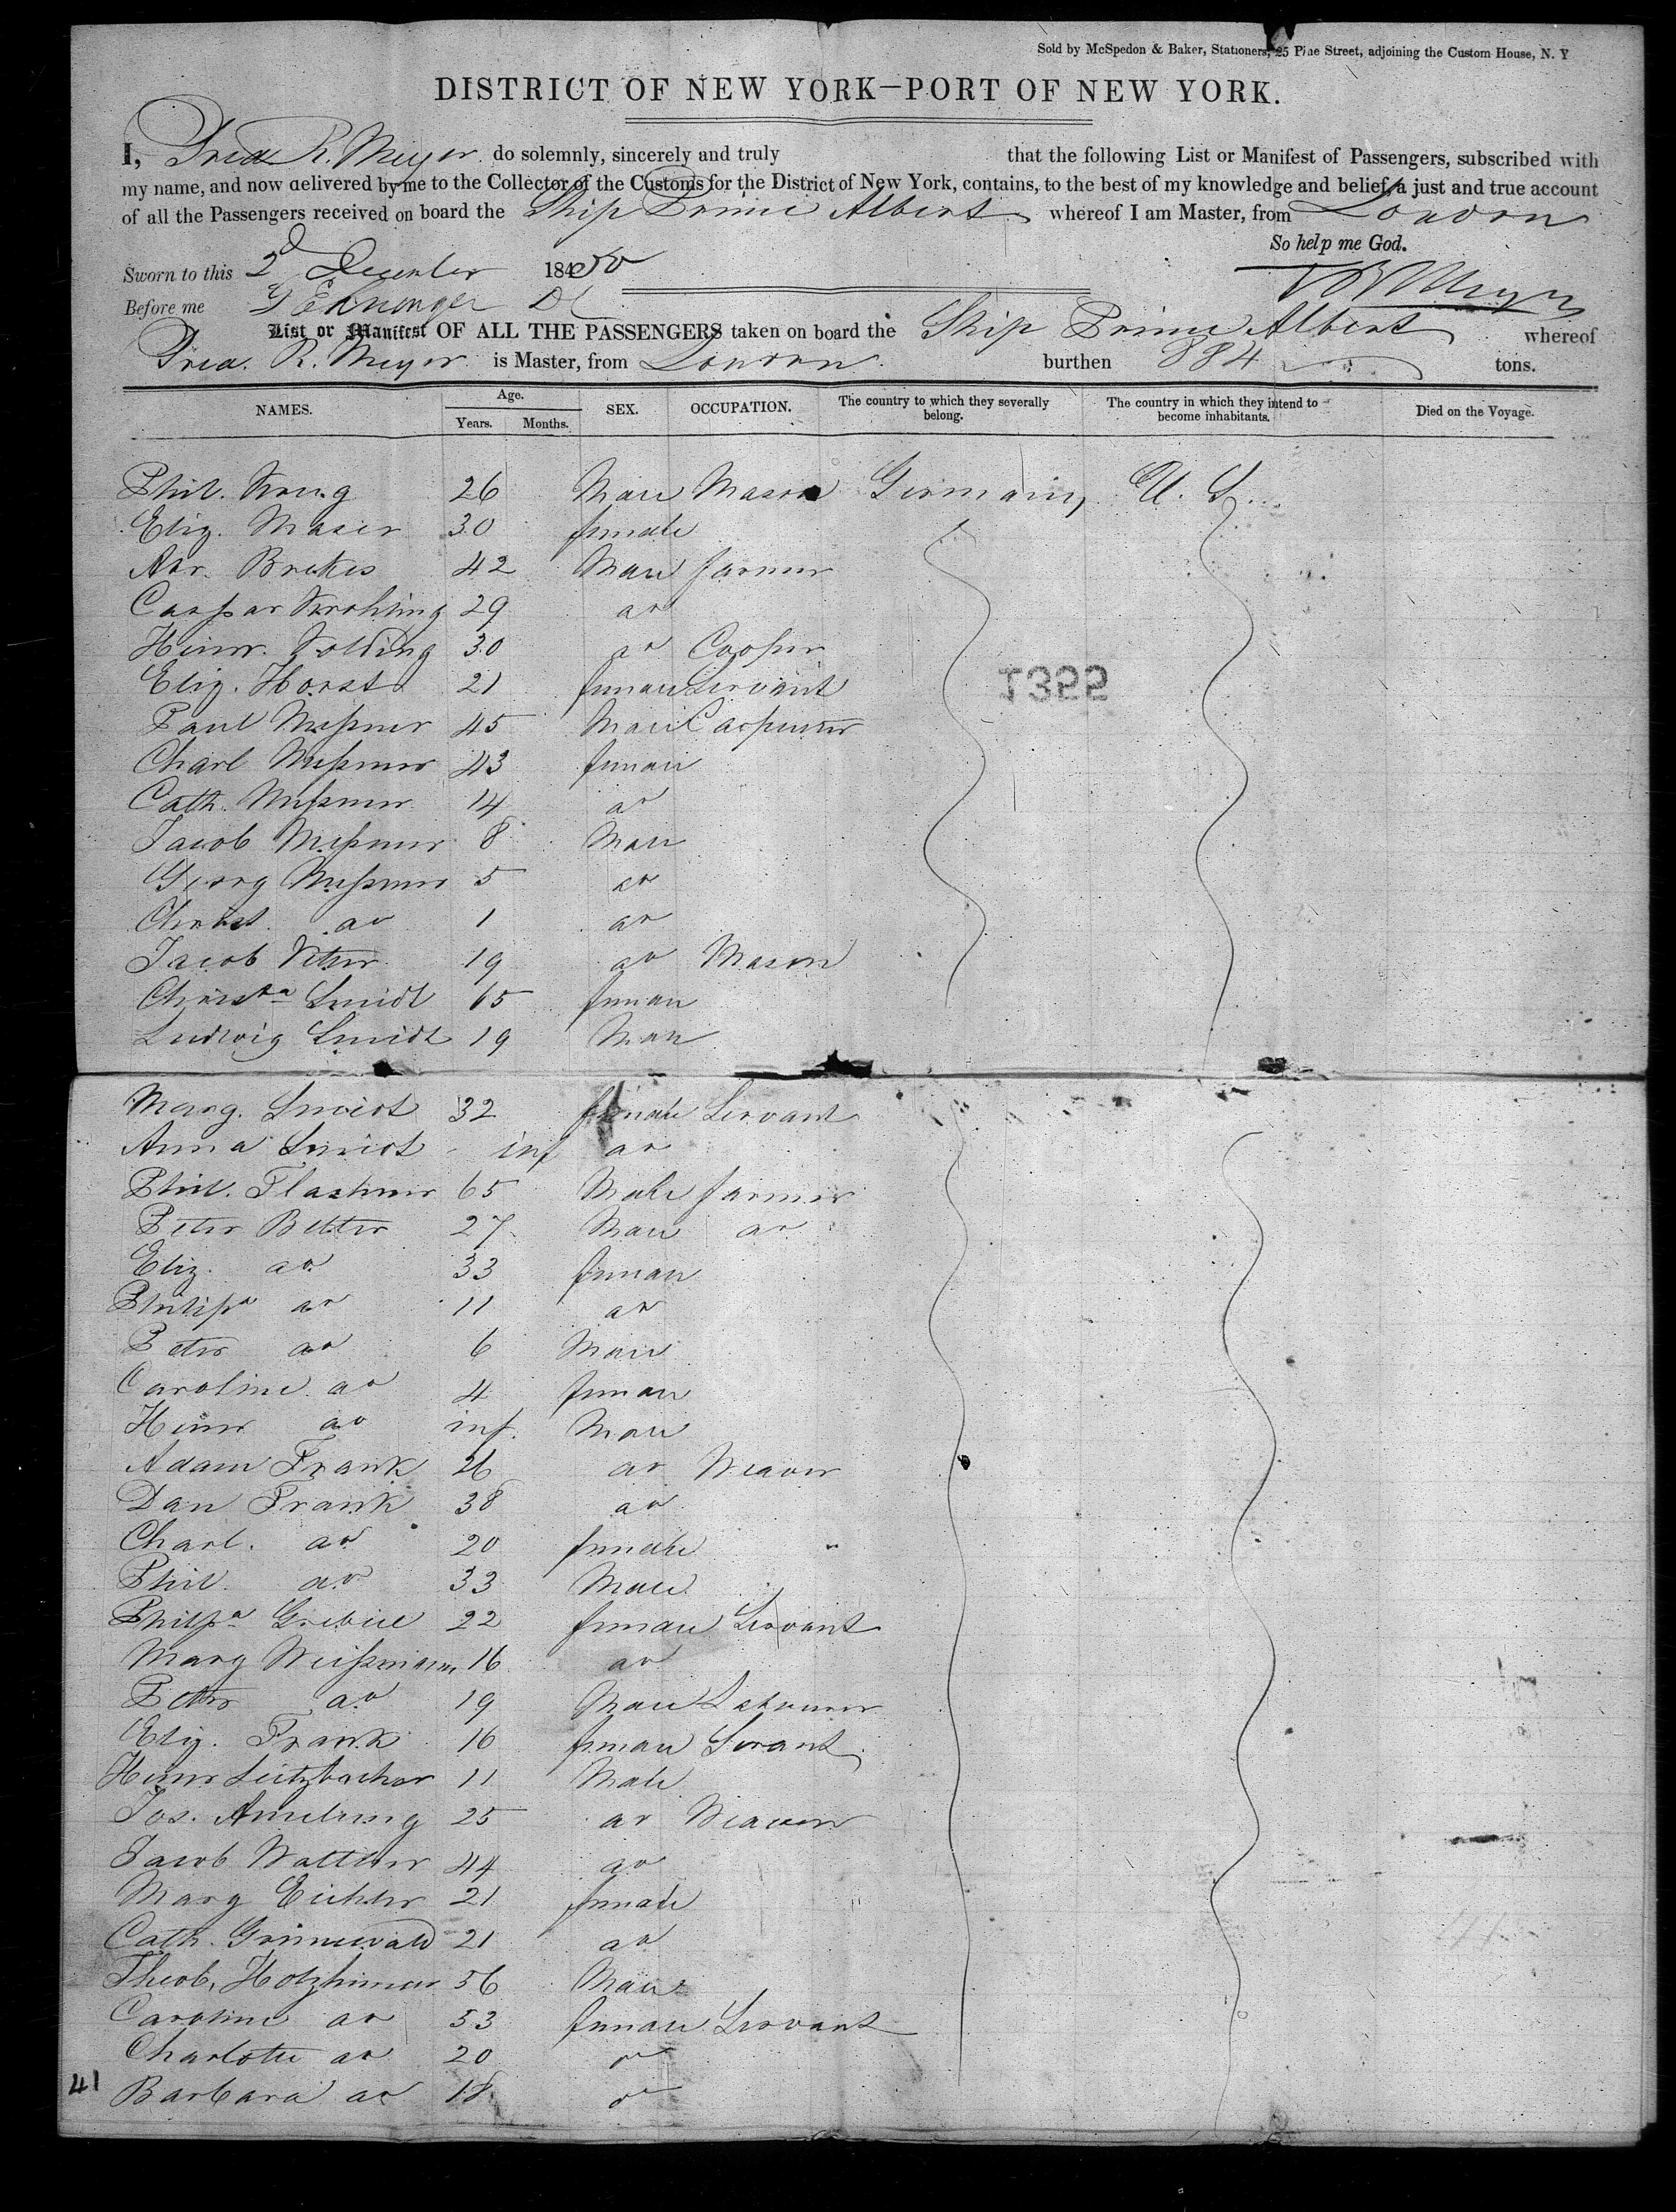 Sold by McSpedon & Baker, Stationers, 25 Pine Street, adjoining the Custom House, N. Y
DISTRICT OF NEW YORK—PORT OF NEW YORK.
I, Fred R. Meyer do solemnly, sincerely and truly that the following List or Manifest of Passengers, subscribed with
my name, and now delivered by me to the Collector of the Customs for the District of New York, contains, to the best of my knowledge and belief, a just and true account
of all the Passengers received on board the Ship Prince Albert whereof I am Master, from London
So help me God.
Sworn to this 2d December 1850
Before me
List or Manifest OF ALL THE PASSENGERS taken on board the Ship Prince Albert whereof
Fred. R. Meyer is Master, from London burthen 884 tons.
NAMES. Age. Years. Months. SEX. OCCUPATION. The country to which they severally belong. The country in which they intend to become inhabitants. Died on the Voyage.
Phil. 26 Male Mason Germany U. S.
Eliz. Maser 30 female
Brekes 42 Male farmer
Caspar 29 do
Heinr. Nolding 30 do Cooper
Eliz. Horst 21 female Servant
1355
Paul Meßmer 45 Male Carpenter
Charl Meßmer 43 female
Cath. Meßmer 14 do
Jacob Meßmer 8 Male
Georg Meßmer 5 do
Christ. do 1 do
Jacob 19 do Mason
Christa Smidt 65 female
Ludwig Smidt 19 Male
Marg. Smidt 32 female Servant
Anna Smidt inf do
Phil. 65 Male farmer
Peter Better 27 Male do
Eliz. do 33 female
Philipa do 11 do
Peter do 6 Male
Caroline do 4 female
Heinr do inf. Male
Adam Frank 26 do Weaver
Dan Frank 38 do
Charl. do 20 female
Phil. do 33 Male
Philpa Grebiel 22 female Servant
Marg Weißmann 16 do
Peter do 19 Male Labourer
Eliz. Frank 16 female Servant
Heinr Leitzbacher 11 Male
Jos. Amelung 25 do Weaver
Jacob Walther 44 do
Marg Eichler 21 female
Cath. Grünewald 21 do
Theob. Holzheimer 56 Male
Caroline do 53 female Servant
Charlotte do 20 do
41 Barbara do 18 do